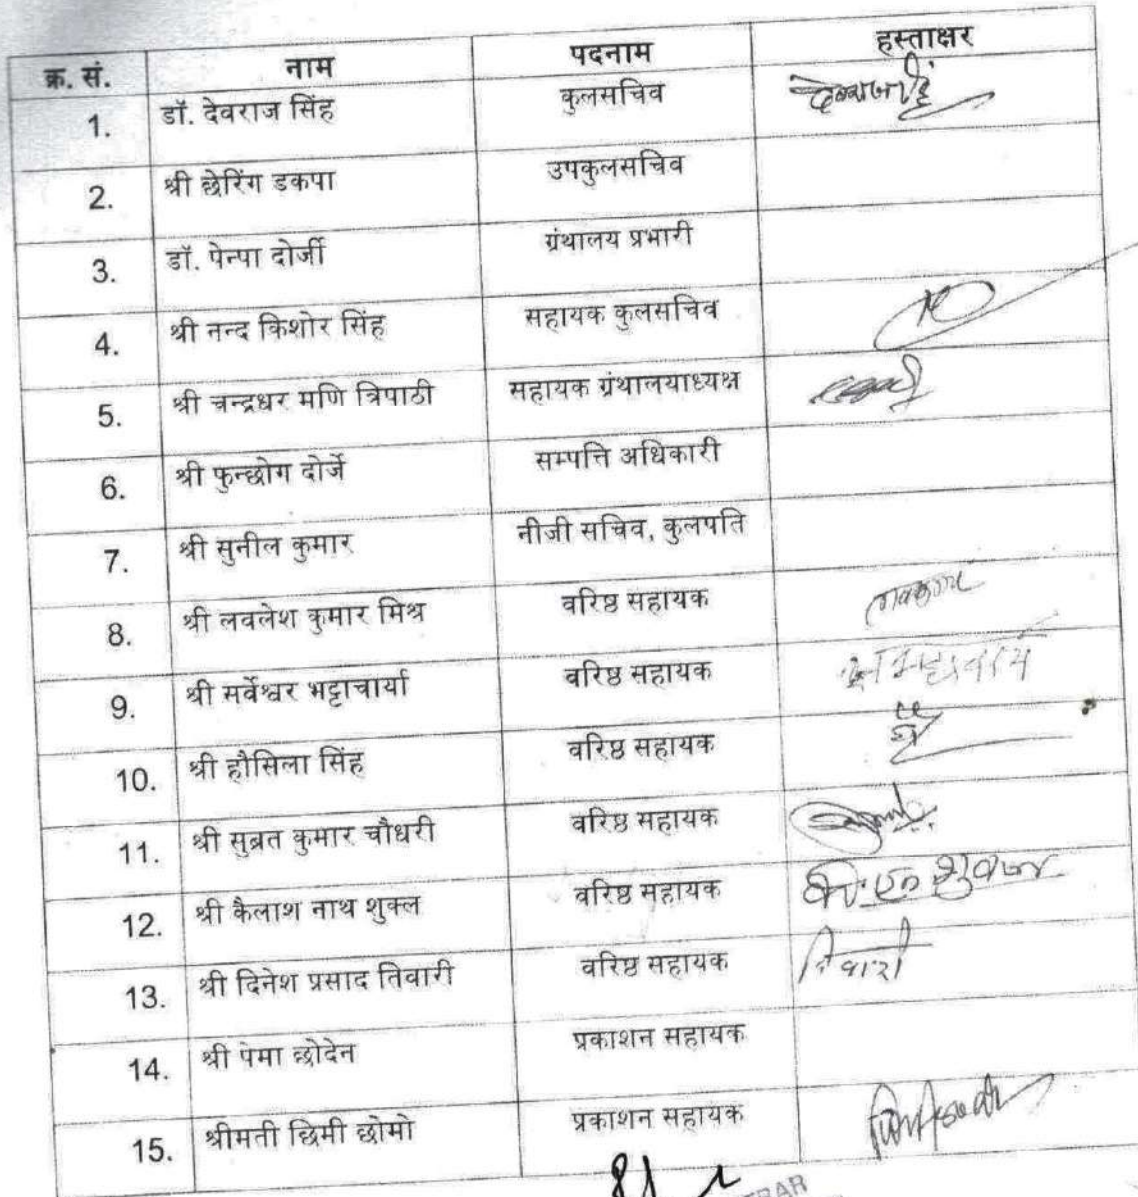 क्र. सं. नाम पदनाम हस्ताक्षर
1. डॉ. देवराज सिंह कुलसचिव देवराज सिंह
2. श्री छेरिंग डकपा उपकुलसचिव
3. डॉ. पेन्पा दोर्जी ग्रंथालय प्रभारी
4. श्री नन्द किशोर सिंह सहायक कुलसचिव
5. श्री चन्द्रधर मणि त्रिपाठी सहायक ग्रंथालयाध्यक्ष
6. श्री फुन्छोग दोर्जे सम्पत्ति अधिकारी
7. श्री सुनील कुमार नीजी सचिव, कुलपति
8. श्री लवलेश कुमार मिश्र वरिष्ठ सहायक
9. श्री सर्वेश्वर भट्टाचार्या वरिष्ठ सहायक
10. श्री हौसिला सिंह वरिष्ठ सहायक
11. श्री सुब्रत कुमार चौधरी वरिष्ठ सहायक
12. श्री कैलाश नाथ शुक्ल वरिष्ठ सहायक
13. श्री दिनेश प्रसाद तिवारी वरिष्ठ सहायक तिवारी
14. श्री पेमा छोदेन प्रकाशन सहायक
15. श्रीमती छिमी छोमो प्रकाशन सहायक